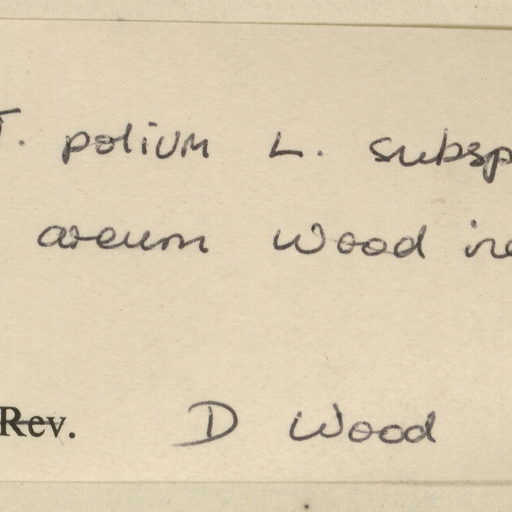 T. polium L. subsp
areum Wood ine
Rev. D Wood